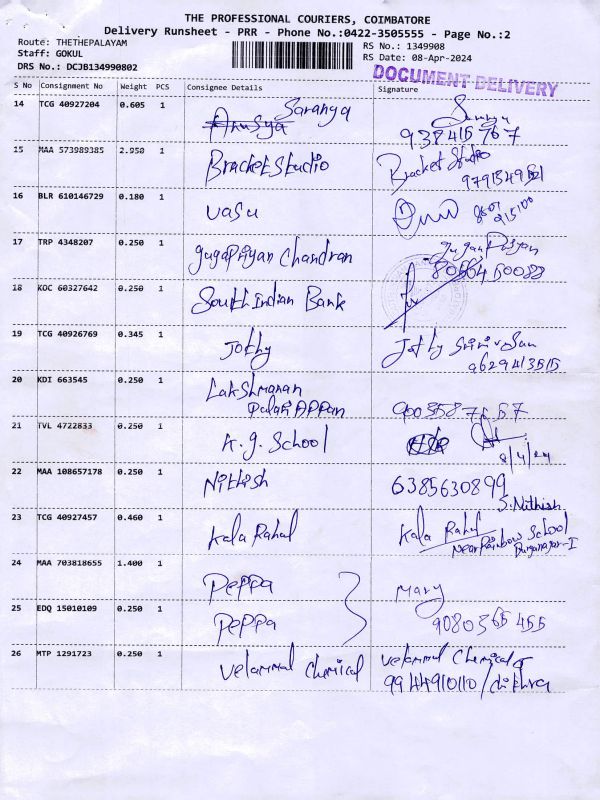 THE PROFESSIONAL COURIERS, COIMBATORE
Delivery Runsheet - PRR - Phone No.:0422-3505555 - Page No.:2
Route: THETHEPALAYAM
Staff: GOKUL
DRS No.: DCJB134990802
RS No.: 1349908
RS Date: 08-Apr-2024
DOCUMENT DELIVERY
S No Consignment No Weight PCS Consignee Details Signature
14 TCG 40927204 0.605 1 Anusya Saranya
15 MAA 573989385 2.950 1 Bracket Studio Bracket Studio
16 BLR 610146729 0.180 1 vasu
17 TRP 4348207 0.250 1 gugapriyan chandran
18 KOC 60327642 0.250 1 South Indian Bank
19 TCG 40926769 0.345 1 Jothy Jothy
9629413515
20 KDI 663545 0.250 1 Lakshmanan
21 TVL 4722833 0.250 1 A.g. School
8/4/24
22 MAA 108657178 0.250 1 Nithish 6385630899
S.Nithish
23 TCG 40927457 0.460 1 Kala Rahul Kala Rahul
Near Rainbow School
24 MAA 703818655 1.400 1 Peppa Mary
25 EDQ 15010109 0.250 1 Peppa 9080365455
26 MTP 1291723 0.250 1 Velammal Chemical Velammal Chemical
9944910110